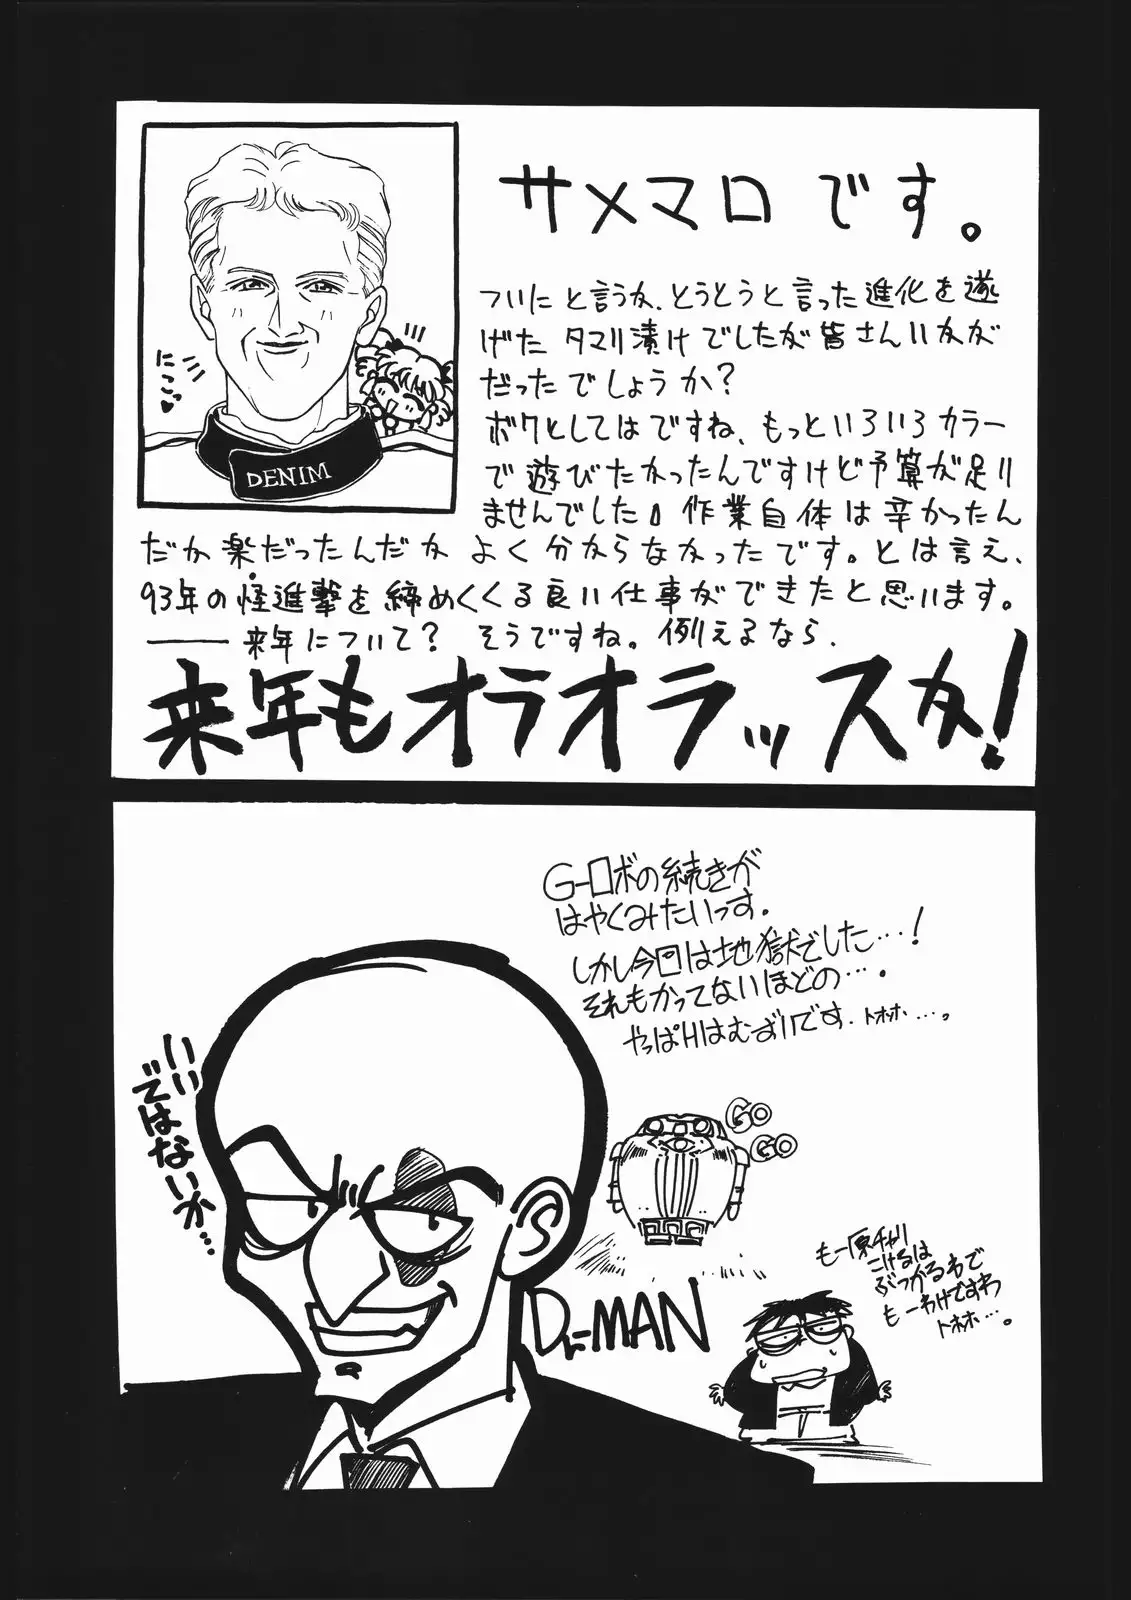 サメマロです。
ついにと言うか、とうとうと言った進化を遂
げたタマリ漬けでしたが皆さんいかが
だったでしょうか?
ボクとしてはですね、もっといろいろカラー
で遊びたかったんですけど予算が足り
ませんでした。作業自体は辛かったん
だか楽だったんだかよく分からなかったです。とは言え、
93年の怪進撃を締めくくる良い仕事ができたと思います。
――来年について? そうですね。例えるなら、
来年もオラオラッスか!
にこっ♥
DENIM
G-ロボの続きが
はやくみたいっす。
しかし今回は地獄でした…!
それもかってないほどの…。
やっぱHはむずいです。トホホ…。
いい
ではないか…
GO
GO
Dr-MAN
もー原チャリ
こけるは
ぶつかるわで
もーわけですわ
トホホ…。